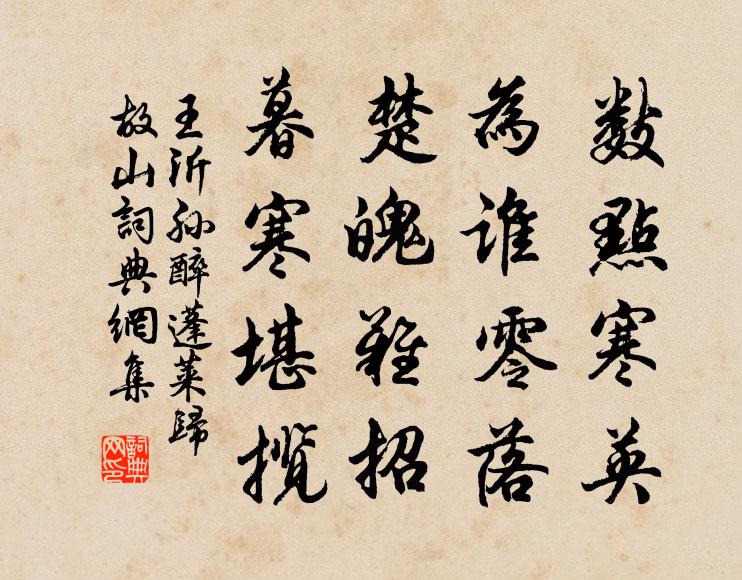 數點寒英
為誰零落
楚魄難招
暮寒堪攬
王沂孫醉蓬萊歸
故山詞典網集
詞典
网印